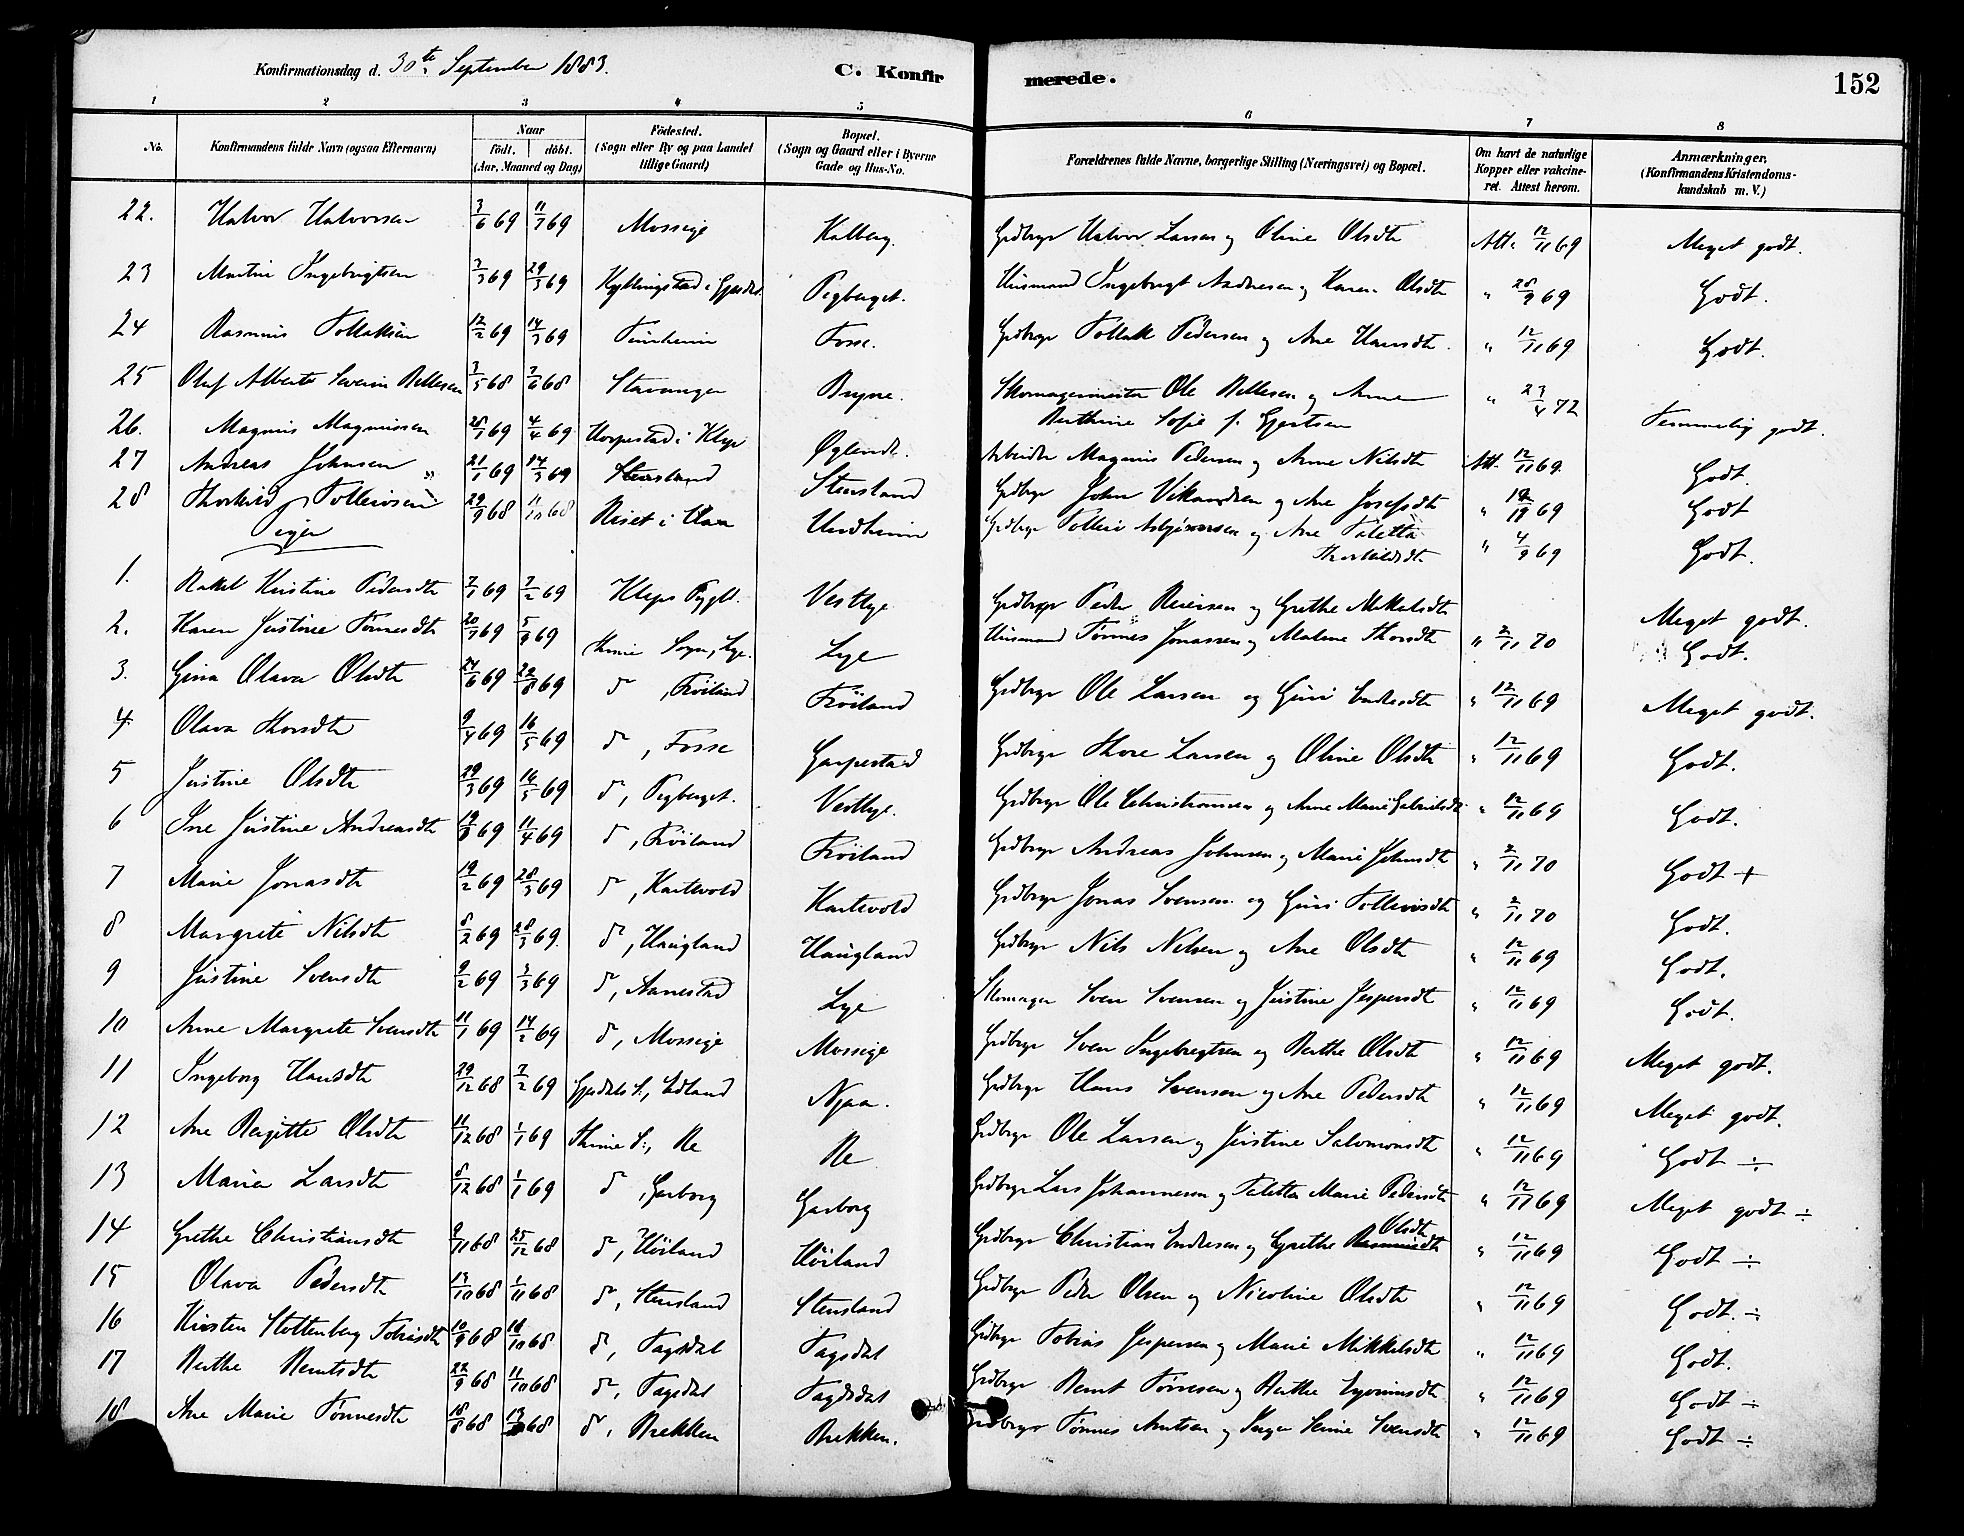 Konfirmationsdag d. 30te September 1883.
C. Konfirmerede.
152
1 2 3 4 5 6 7 8
No. Konfirmandens fulde Navn (ogsaa Efternavn) Naar födt. döbt. (Aar, Maaned og Dag) Födested. (Sogn eller By og paa Landet tillige Gaard) Bopæl. (Sogn og Gaard eller i Byerne Gade og Hus-No. Forældrenes fulde Navne, borgerlige Stilling (Næringsvei) og Bopæl. Om havt de naturlige Kopper eller vakcineret. Attest herom. Anmærkninger. (Konfirmandens Kristendomskundskab m. V.)
22. Halvor Halvorsen 3/6 69 11/7 69 Mossige Kalberg. Grdbrgr Halvor Larsen og Oline Olsdtr Att. 12/11 69 Meget godt.
23 Martin Ingebrigtsen 7/3 69 29/3 69 Kyllingstad i Gjesdal Tegberget. Husmand Ingebrigt Andresen og Karen Olsdtr " 28/9 69 Godt.
24 Rasmus Tollaksen 12/2 69 14/3 69 Tunheim Fosse. Grdbrgr Tollak Pedersen og Ane Hansdtr. " 12/11 69 Godt.
25 Oluf Alberto Severin Bellesen 7/5 68 7/6 68 Stavanger Bryne. Skomagermester Ole Bellesen og Anne Berthine Sofie f. Gjertsen " 23/4 72 Temmelig godt.
26. Magnus Magnussen 28/1 69 4/4 69 Horpestad i Klep Øglend. Arbeider Magnus Pedersen og Anne Nilsdtr Att. 12/11 69. Godt.
27 Andreas Johnsen 21/1 69 14/3 69 Stensland Stensland Grdbrgr John Vikandsen og Ane Josefsdtr " 12/11 69 Godt
28 Thorkild Tollevsen 29/9 68 11/10 68 Riset i Haa Undheim Grdbrgr Tollev Asbjörnsen og Ane Taletta Thorkildsdtr " 4/9 69 Godt.
Piger
1. Rakel Kristine Pedersdtr 7/1 69 7/2 69 Kleps Prgld. Vestlye Grdbrgr Peder Reiersen og Grethe Mikkelsdtr Meget godt.
2. Karen Justine Tönnesdtr 20/7 69 5/9 69 Thime Sogn, Lye. Lye Husmand Tönnes Jonassen og Malene Thorsdtr " 2/11 70 Godt.
3. Gina Olava Olsdtr 24/6 69 22/8 69 do, Fröiland Fröiland Grdbrgr Ole Larsen og Guri Endresdtr " 12/11 69 Meget godt.
4. Olava Thorsdtr 9/4 69 16/5 69 do, Fosse Garpestad Grdbrgr Thore Larsen og Oline Olsdtr " 12/11 69 Godt.
5 Justine Olsdtr 29/3 69 16/5 69 do, Tegberget. Vestlye. Grdbrgr Ole Christiansen og Anne Marie Gabrielsdtr " 12/11 69 Godt.
6 Ine Justine Andreasdtr 19/3 69 11/4 69 do, Fröiland Fröiland Grdbrgr Andreas Johnsen og Marie Johnsdtr " 2/11 70 Godt +
7 Marie Jonasdtr 19/2 69 28/3 69 do, Kartevold Kartevold Grdbrgr Jonas Svensen og Guri Tollevsdtr " 2/11 70 Godt.
8 Margrete Nilsdtr 8/2 69 28/3 69. do, Haugland Haugland Grdbrgr Nils Nilsen og Ane Olsdtr " 12/11 69 Godt.
9 Justine Svensdtr 9/2 69 7/3 69 do, Aanestad Lye Skomager Sven Svensen og Justine Jespersdtr " 12/11 69 Godt.
10 Anne Margrete Svensdtr 11/1 69 14/2 69 do, Mossige Mossige Grdbrgr Sven Ingebregtsen og Berthe Olsdtr " 12/11 69 Meget godt.
11 Ingeborg Hansdtr 29/12 68 7/2 69 Gjesdals S., Edland Njaa. Grdbrgr Hans Svensen og Ane Pedersdtr " 12/11 69 Meget godt.
12 Ane Bergitte Olsdtr 11/12 68 1/1 69 Thime S., Re Re Grdbrgr Ole Larsen og Justine Salomonsdtr " 12/11 69 Godt ÷
13 Maria Larsdtr 8/12 68 1/1 69 do, Garborg Garborg Grdbrgr Lars Johannesen og Taletta Marie Pedersdtr " 12/11 69 Meget godt ÷
14 Grethe Christiansdtr 9/11 68 25/12 68 do, Höiland Höiland Grdbrgr Christian Endresen og Grethe Olsdtr " 12/11 69 Godt ÷
15 Olava Pedersdtr 13/10 68 1/11 68 do, Stensland Stensland Grdbrgr Peder Olsen og Nicoline Olsdtr " 12/11 69 Godt. ÷
16 Kirsten Stoltenberg Tobiasdtr 10/9 68 18/10 68 do, Tagsdal Tagsdal Grdbrgr Tobias Jespersen og Marie Mikkelsdtr " 12/11 69 Godt.
17 Berthe Berntsdtr 22/9 68 11/10 68 do, Tagsdal Tagsdal Grdbrgr Bernt Törresen og Berthe " 12/11 69 Godt ÷
18 Ane Marie Tönnesdtr 18/8 68 13/ 68 do, Brekken Brekken. Grdbrgr Tönnes Arntsen og Svensdtr " 12/11 69 Godt ÷